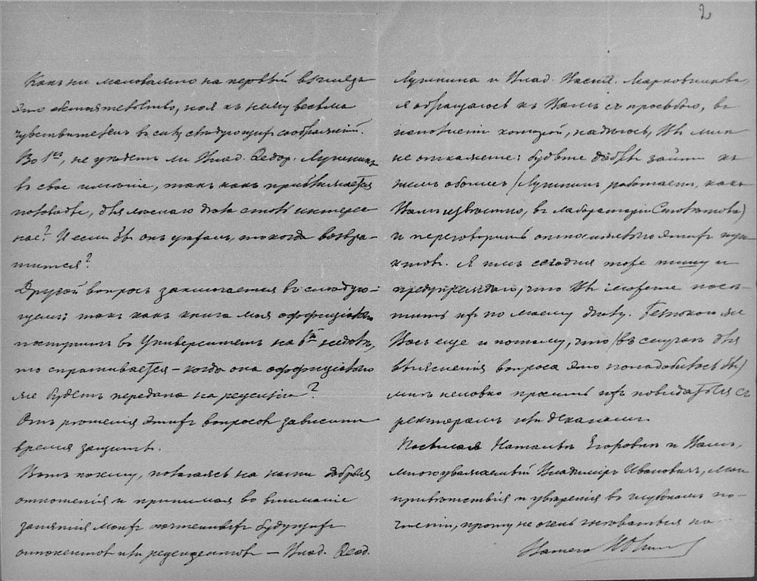 2
Какъ ни маловажно на первый взглядъ
это обстоятельство, но я къ нему весьма
чувствителенъ въ силу слѣдующихъ соображеній.
Во 1хъ, не уѣдетъ ли Влад. Ѳедор. Лугининъ
въ свое имѣніе, такъ какъ приближается
половодье, для моего дѣла столь интерес
ное? И если бы онъ уѣхалъ, то когда возвра-
тится?
Другой вопросъ заключается въ слѣдую-
щемъ: такъ какъ книга моя оффиціально
поступитъ въ Университетъ на 6й недѣлѣ,
то спрашивается – когда она оффиціально
же будетъ передана на рецензію?
Отъ рѣшенія этихъ вопросовъ зависитъ
время защиты.
Вотъ почему, полагаясь на наши добрыя
отношенія и принимая во вниманіе
занятія моихъ почтенныхъ будущихъ
оппонентовъ или рецензентовъ – Влад. Ѳеод.
Лугинина и Влад. Васил. Марковникова,
я обращаюсь къ Вамъ съ просьбою, въ
исполненіи которой, надѣюсь, Вы мнѣ
не откажете: будьте добры зайти къ
нимъ обоимъ (Лугининъ работаетъ, какъ
Вамъ извѣстно, въ лабораторіи Столѣтова)
и переговорить относительно этихъ пун
ктовъ. Я имъ сегодня тоже пишу и
предупреждаю, что Вы можете посѣ-
тить ихъ по моему дѣлу. Безпокою же
Васъ еще и потому, что (въ случаѣ для
выясненія вопроса это понадобилось бы)
мнѣ неловко просить ихъ повидаться съ
ректоромъ или деканомъ.
Посылая Натальѣ Егоровнѣ и Вамъ,
многоуважаемый Владиміръ Ивановичъ, мои
привѣтствія и увѣренія въ глубокомъ по-
чтеніи, прошу не очень гнѣваться на
Вашего